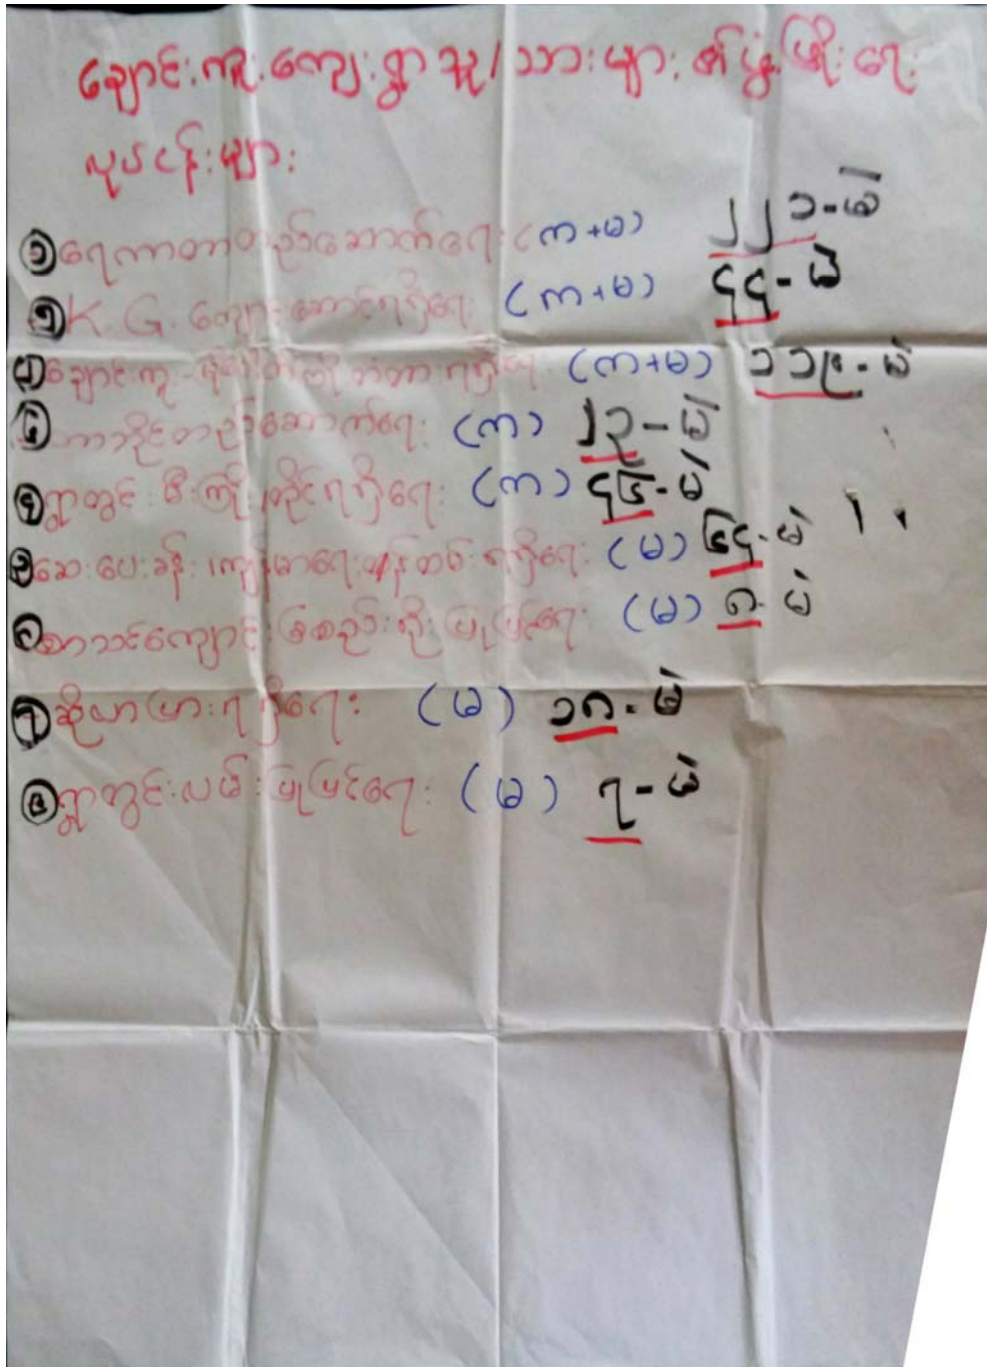 ချောင်းကူးကျေးရွာသူ/သားများ ဖွံ့ဖြိုးရေး
လုပ်ငန်းများ
① ရေကာတာတည်ဆောက်ရေး (က+မ) ၂၂၁-မဲ
② K.G. ကျောင်းဆောင်ရရှိရေး (က+မ) ၄၄-မဲ
③ ချောင်းကူး တံတားရရှိရေး (က+မ) ၁၁၉-မဲ
④ တည်ဆောက်ရေး (က) မဲ
⑤ ရွာတွင်းမီးကြိုး၊ တိုင်ရရှိရေး (က) ၄၆-မဲ
⑥ ဆေးပေးခန်း၊ ကျန်းမာရေးဝန်ထမ်းရရှိရေး (မ) မဲ
⑦ စာသင်ကျောင်းခြံစည်းရိုးပြုပြင်ရေး (မ) ၈-မဲ
⑧ ဆိုလာပြားရရှိရေး (မ) ၁၈-မဲ
⑨ ရွာတွင်းလမ်းပြုပြင်ရေး (မ) ၇-မဲ